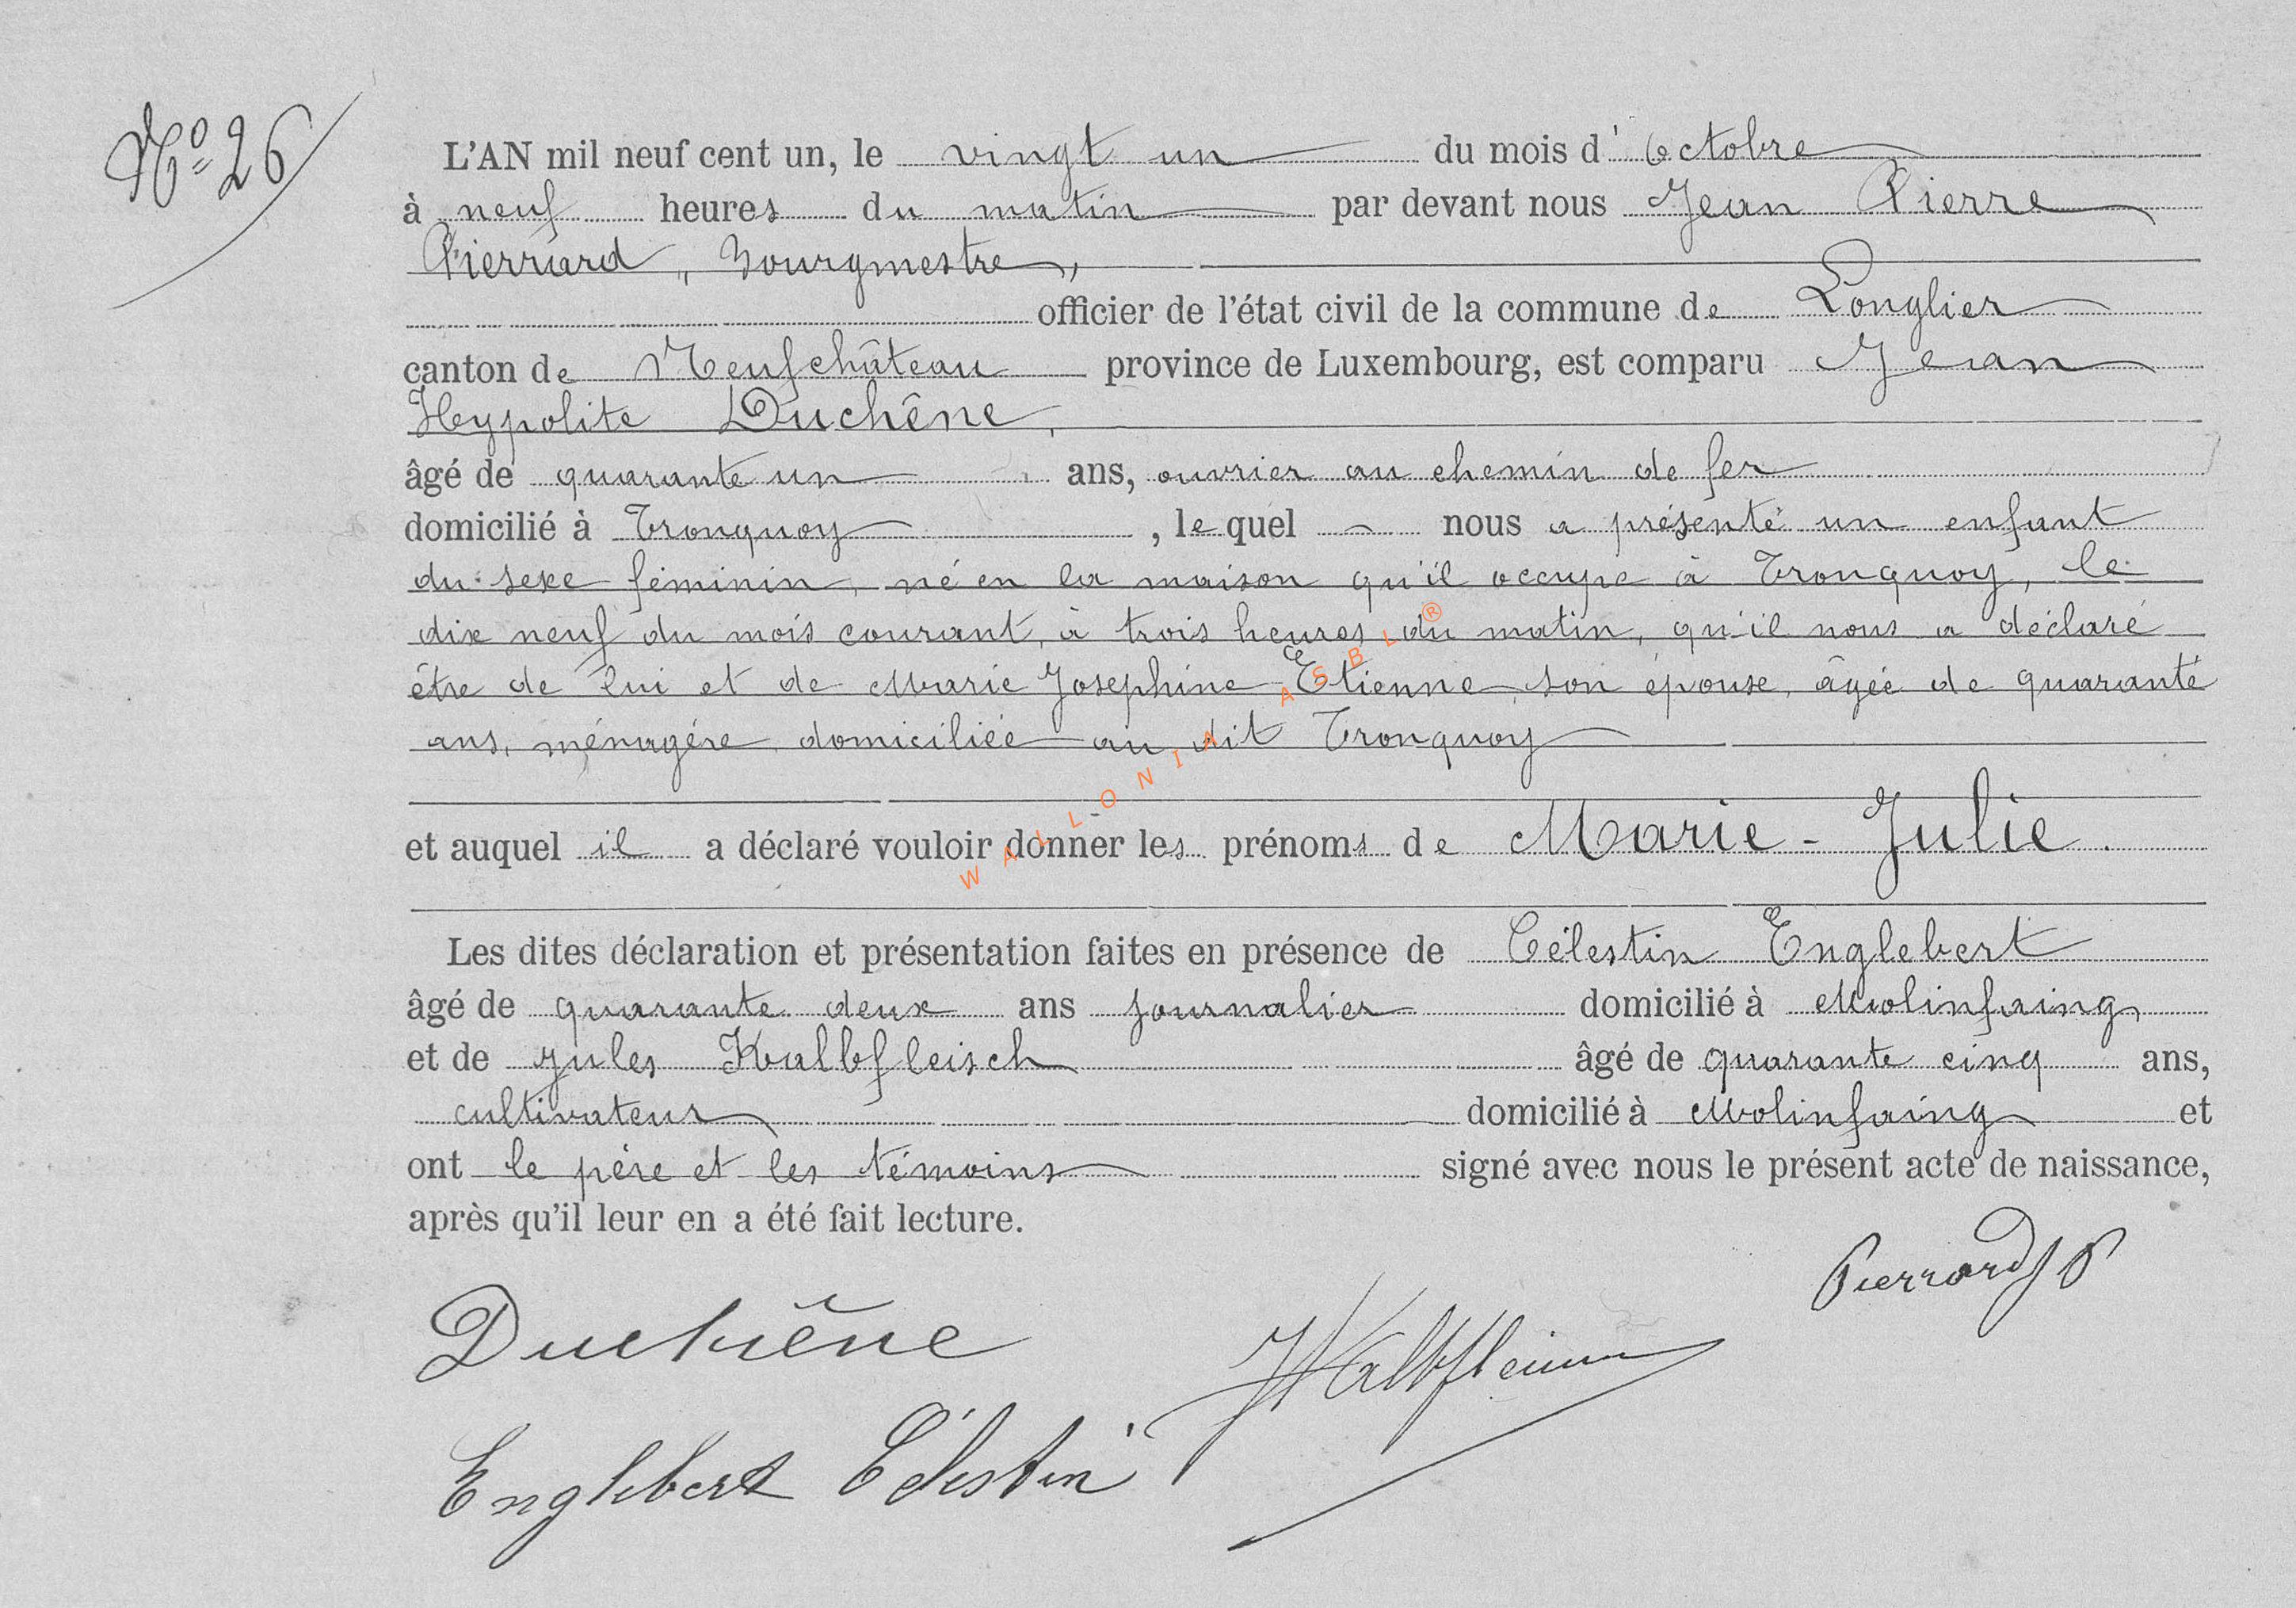 N° 26
L'AN mil neuf cent un, le vingt un du mois d'Octobre
à neuf heures du matin par devant nous Jean Pierre
Pierrard, Bourgmestre,
officier de l'état civil de la commune de Longlier
canton de Neufchâteau province de Luxembourg, est comparu Jean
Hypolite Duchêne,
âgé de quarante un ans, ouvrier au chemin de fer
domicilié à Tronquoy, lequel nous a présenté un enfant
du sexe féminin, né en la maison qu'il occupe à Tronquoy, le
dix neuf du mois courant, à trois heures du matin, qu'il nous a déclaré
être de lui et de Marie Josephine Etienne, son épouse, âgée de quarante
ans, ménagère, domiciliée au dit Tronquoy
et auquel il a déclaré vouloir donner les prénoms de Marie-Julie.
WALLONIA ASBL®
Les dites déclaration et présentation faites en présence de Célestin Englebert
âgé de quarante deux ans journalier domicilié à Molinfaing
et de Jules Kalbfleisch âgé de quarante cinq ans,
cultivateur domicilié à Molinfaing et
ont le père et les témoins signé avec nous le présent acte de naissance,
après qu'il leur en a été fait lecture.
Pierrard JP
Duchêne
JKalbfleisch
Englebert Célestin